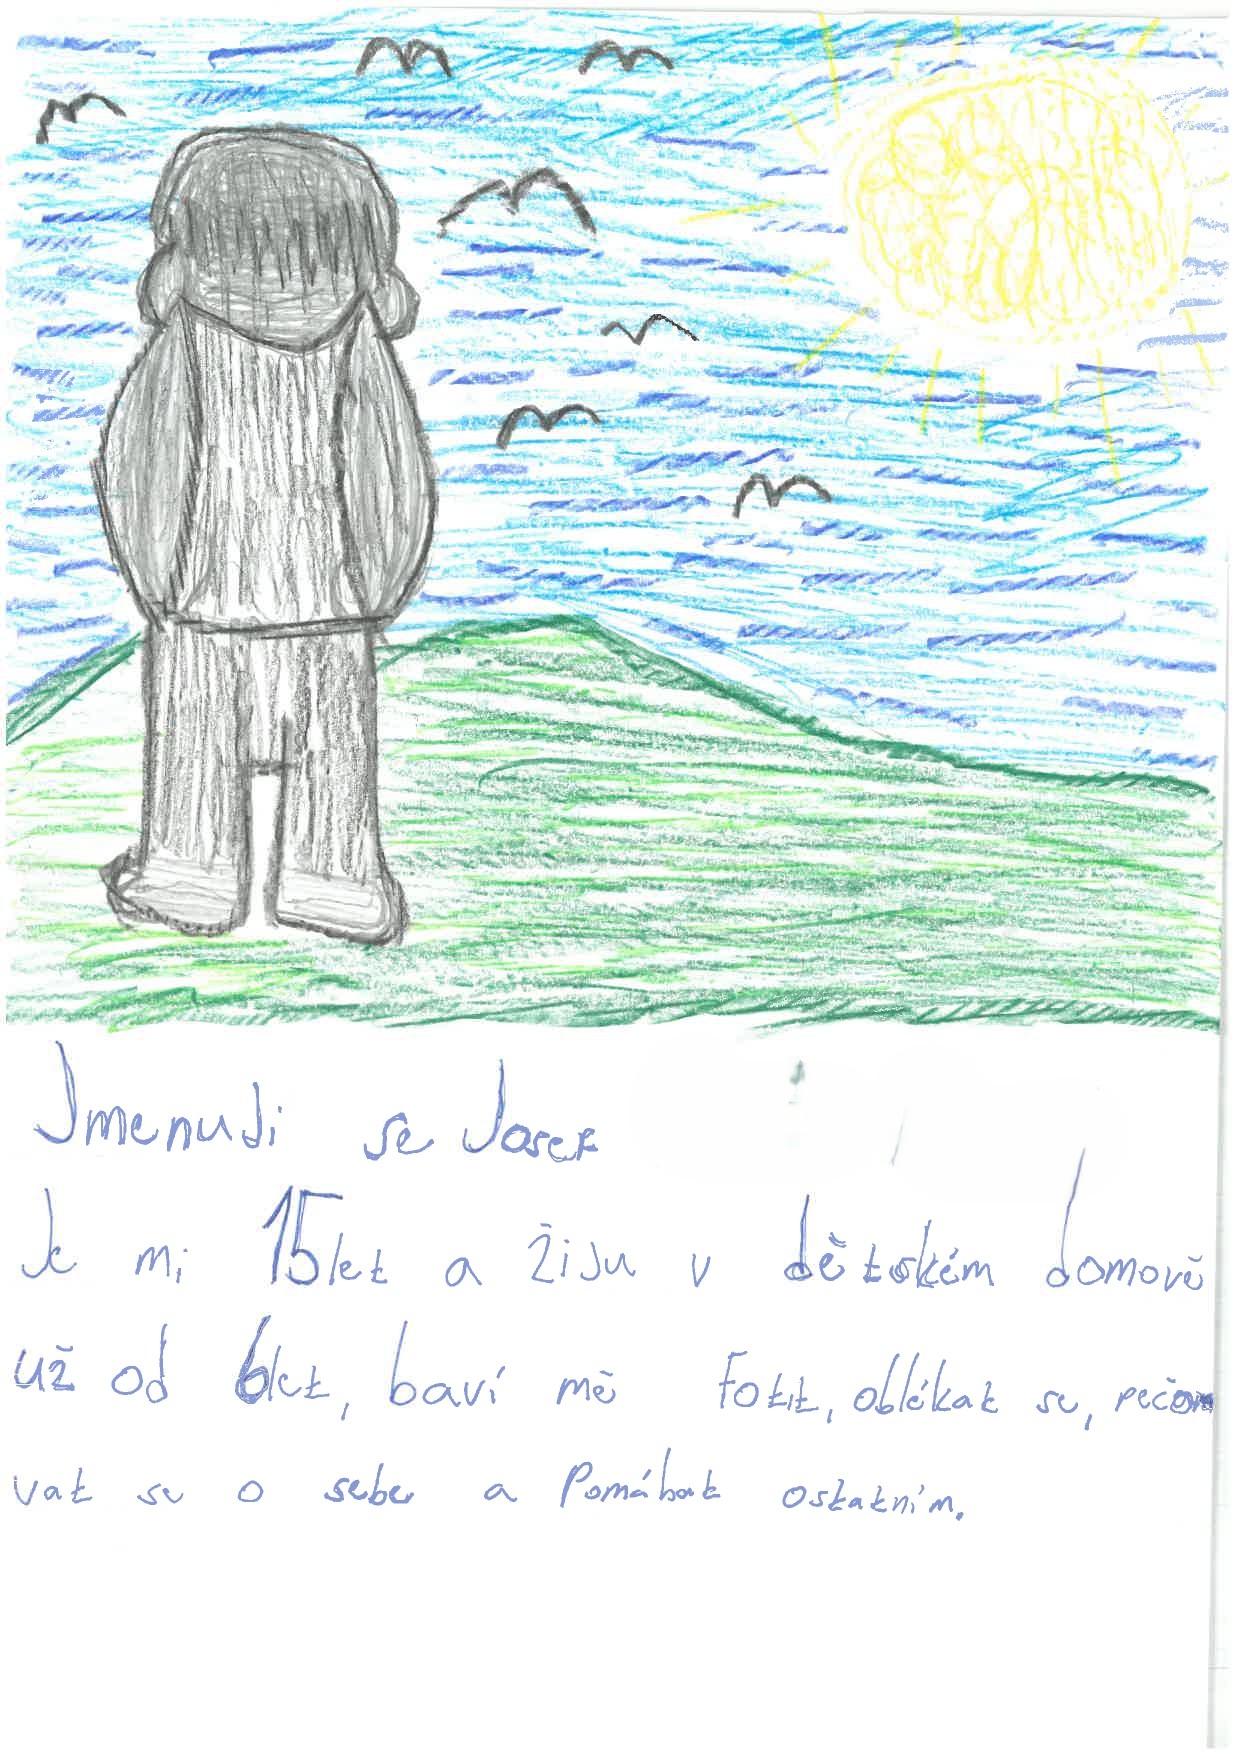 Jmenuji se Josef
Je mi 15let a žiju v dětském domově
už od 6let, baví mě Fotit, oblékat se, pečo
vat se o sebe a Pomáhat ostatním.